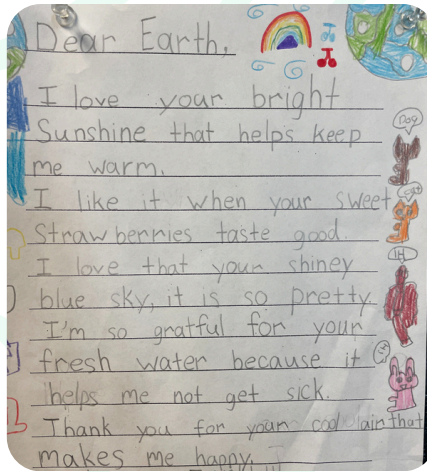 Dear Earth,
I love your bright
Sunshine that helps keep
me warm.
I like it when your sweet
Strawberries taste good.
I love that your shiney
blue sky, it is so pretty.
I'm so gratful for your
fresh water because it
helps me not get sick.
Thank you for your cool air that
makes me happy.
Dog
cat